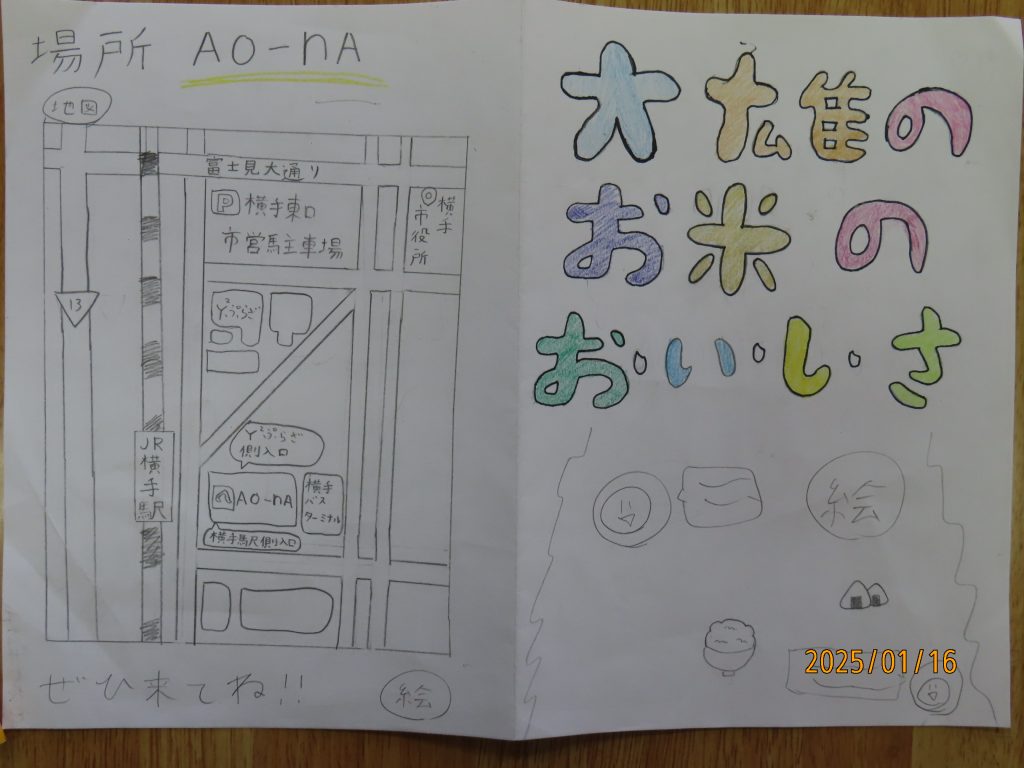 場所 AO-nA
地図
富士見大通り
P 横手東口
市営駐車場
横手
市役所
13
Y²ぷらざ
Y²ぷらざ
側入口
JR横手駅
AO-nA
横手
バス
ターミナル
横手駅側入口
ぜひ来てね!!
絵
大雄の
お米の
おいしさ
絵
2025/01/16